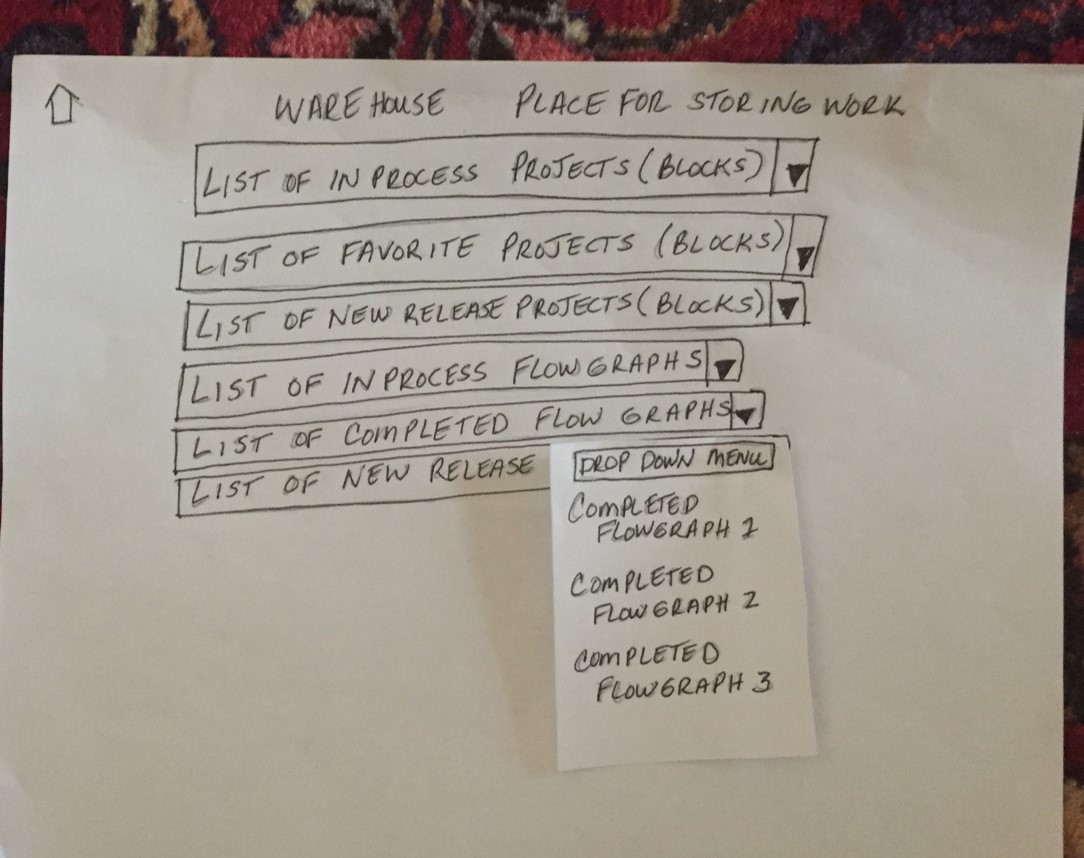 WAREHOUSE PLACE FOR STORING WORK
LIST OF IN PROCESS PROJECTS (BLOCKS)
LIST OF FAVORITE PROJECTS (BLOCKS)
LIST OF NEW RELEASE PROJECTS (BLOCKS)
LIST OF IN PROCESS FLOWGRAPHS
LIST OF COMPLETED FLOW GRAPHS
LIST OF NEW RELEASE
DROP DOWN MENU
COMPLETED
FLOWGRAPH 1
COMPLETED
FLOWGRAPH 2
COMPLETED
FLOWGRAPH 3